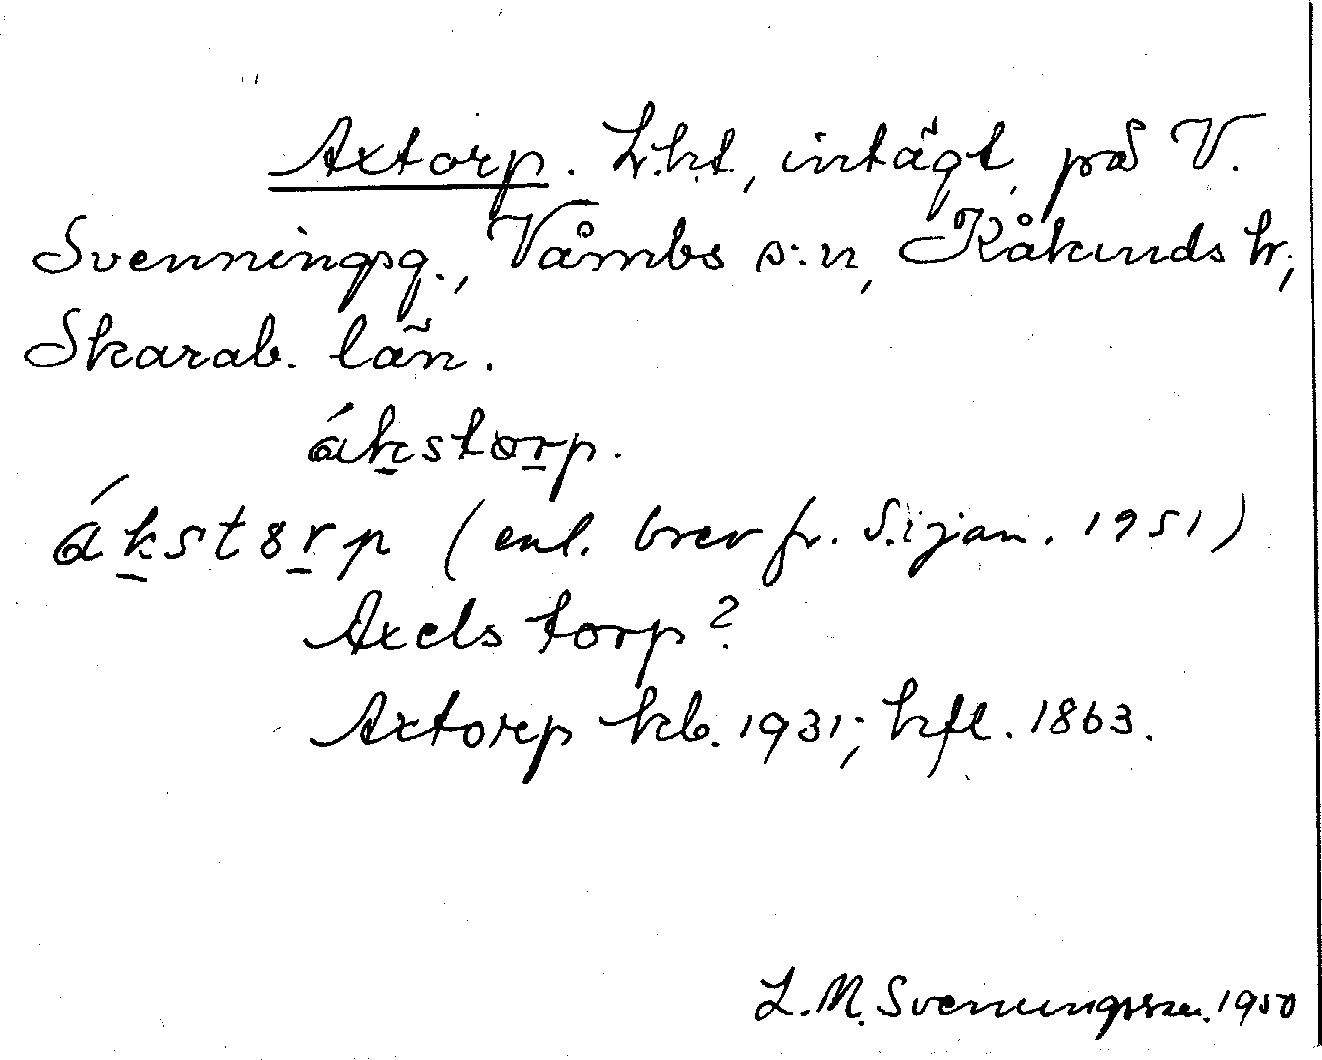 Axtorp. L.h.t, intägt på V.
Svenningsg., Våmbs s:n, Kåkinds hr,
Skarab. län.
ákstorp.
ákst8rp (enl. brev fr. S. i jan. 1951)
Axelstorp?
Axtorp kb. 1931; hfl. 1863.
L. M. Svenungsson. 1950